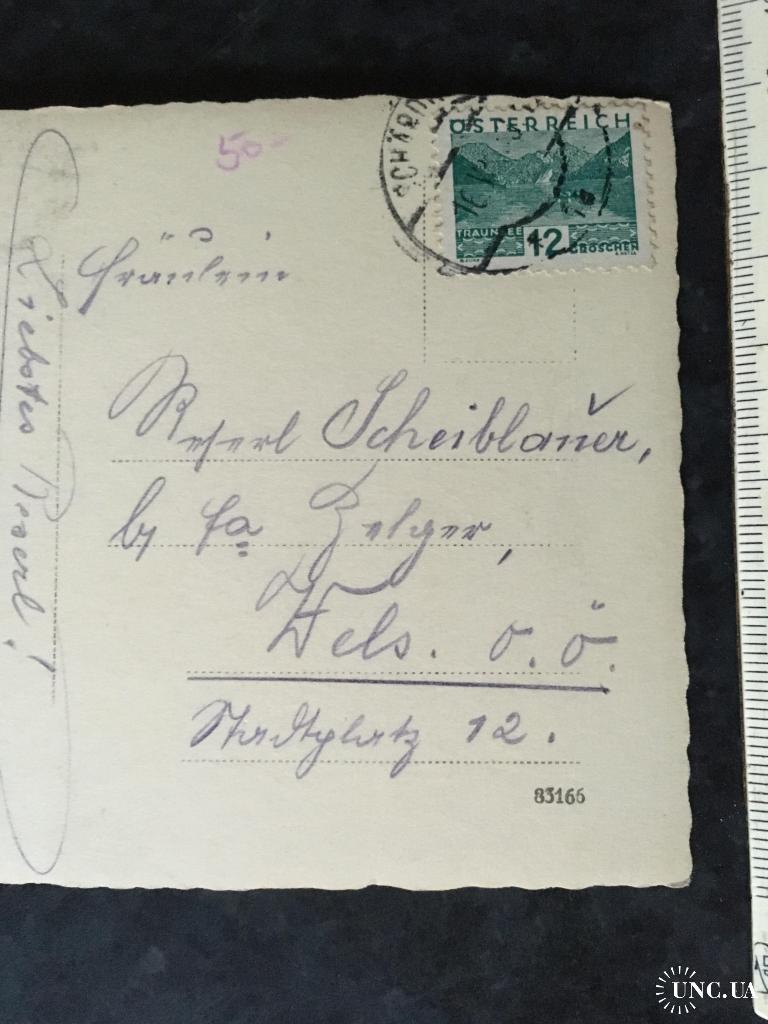 50-
SCHÄRD
ÖSTERREICH
TRAUNSEE
12
GROSCHEN
Fräulein
Reserl Scheiblauer,
bei Fa Zelger,
Wels. O.Ö.
Stadtplatz 12.
83166
Liebstes Reserl!
UNC.UA